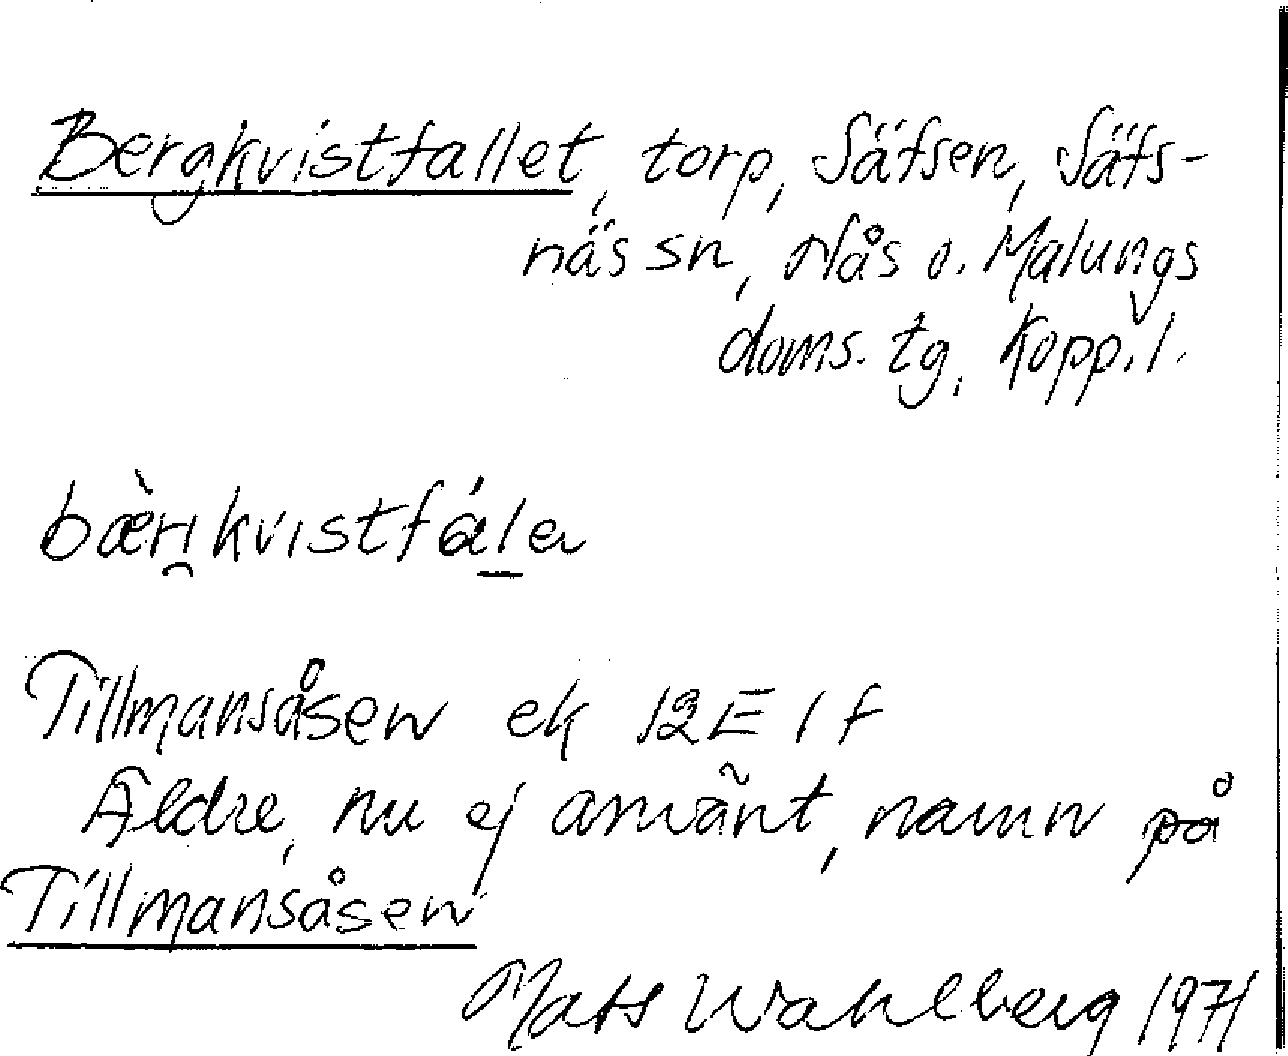 Bergkvistfallet, torp, Säfsen, Säfs-
näs sn, Nås o. Malungs
doms. tg, Kopp. l.
Tillmansåsen ek 12E 1f
Äldre, nu ej använt, namn på
Tillmansåsen
Mats Wahlberg 1971